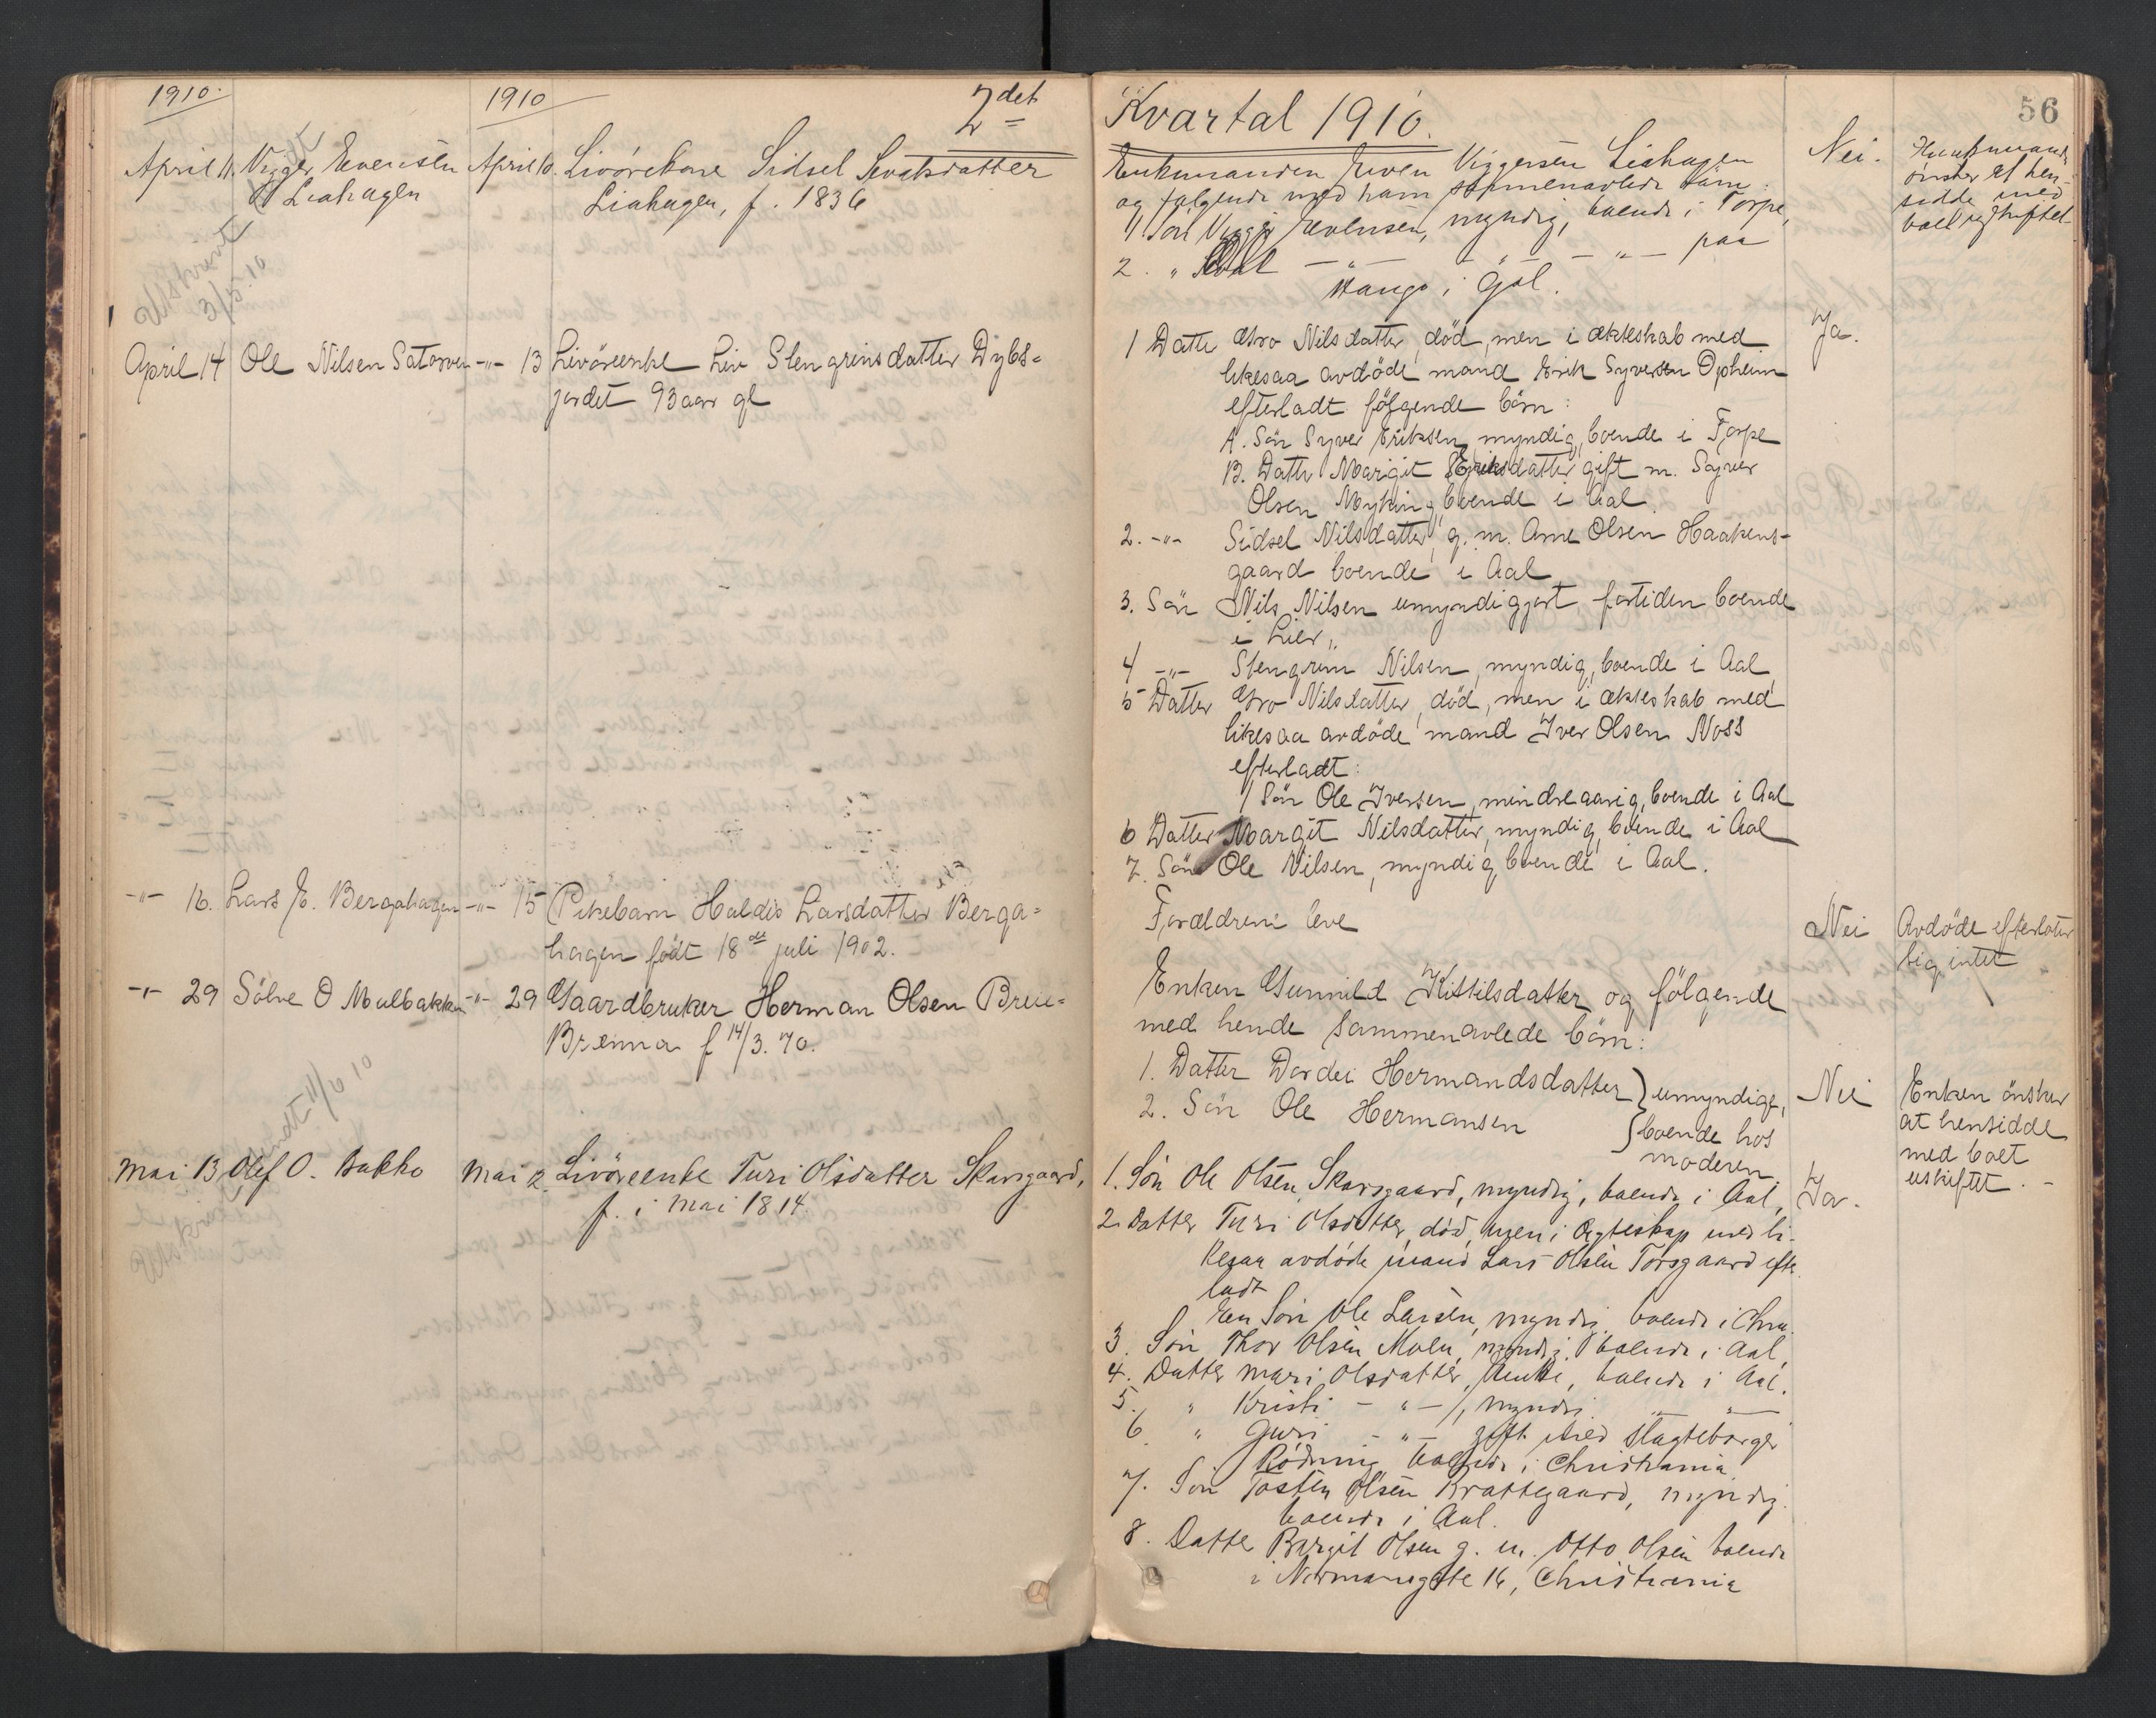 1910.
1910
2det
April 11. Vigger Evensen April 10. Livörekone Sidsel Sevatsdatter
Liahagen
Liahagen, f. 1836
3/5.10
April 14 Ole Nilsen Satorven -"- 13 Livöreenke Liv Stengrimsdatter Dybs=
jordet 93 aar gl
-"- 16. Lars E. Bergahagen -"- 15 Pikebarn Haldis Larsdatter Berga=
hagen födt 18de juli 1902.
-"- 29 Sölve O Mulbakken -"- 29 Gaardbruker Herman Olsen Breie=
Brenna f 14/3. 70.
Mai 13 Olef O. Bakko Mai 2. Livöreenke Turi Olsdatter Skarsgaard,
f. i Mai 1814
56
Kvartal 1910.
Enkemanden Even Viggersen Liahagen
og følgende med ham sammenavlede børn:
1. Søn Vigger Evensen, myndig, boende i Torpe,
2. " Sevat -"- -"- -"- paa
Hauge i Gol.
Nei.
Enkemanden
ønsker at hen-
sidde med
boet uskiftet
1 Datter Gro Nilsdatter, död, men i ekteskab med
likesaa avdöde mand Erik Syversen Opheim
efterladt fölgende börn:
A. Sön Syver Eriksen, myndig, boende i Torpe
B. Datter Margit Eriksdatter gift m. Syver
Olsen Myking, boende i Aal
Ja.
2. -"- Sidsel Nilsdatter, g. m. Arne Olsen Haakens-
gaard boende i Aal
3. Sön Nils Nilsen umyndiggjort fortiden boende
i Lier,
4 -"- Stengrim Nilsen, myndig, boende i Aal
5 Datter Gro Nilsdatter, död, men i ekteskab med
likesaa avdöde mand Iver Olsen Noss
efterladt:
1 Sön Ole Iversen, mindreaarig, boende i Aal
6 Datter Margit Nilsdatter, myndig, boende i Aal
7. Sön Ole Nilsen, myndig, boende i Aal.
Forældrene leve
Nei
Avdöde efterlater
sig intet
Enken Gunnild Kittilsdatter og fölgende
med hende sammenavlede börn:
1. Datter Dordei Hermandsdatter } umyndige,
2. Sön Ole Hermansen } boende hos
moderen
Nei
Enken önsker
at hensidde
med boet
uskiftet. -
1. Søn Ole Olsen Skarsgaard, myndig, boende i Aal,
Ja.
2. Datter Turi Olsdatter, död, men i Ægteskap med li-
kesaa avdöde mand Lars Olsen Torsgaard efter
ladt
En Søn Ole Larsen, myndig, boende i Chra.
3. Søn Thor Olsen Molu, myndig, boende i Aal,
4. Datter Mari Olsdatter, Enke, boende i Aal.
5. " Kristi -"-, myndig -"-
6. " Guri -"- gift med
Rödning, boende i Christiania
7. Søn Tosten Olsen Brattegaard, myndig
boende i Aal.
8. Datter Birgit Olsen g. m. Otto Olsen boende
i Normansgate 16, Christiania